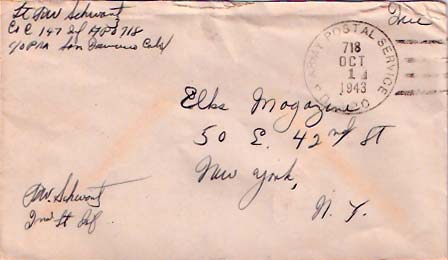 Lt. F.W. Schwartz
Co C 147 Inf APO 718
c/o PM San Francisco Calif
Free
U.S. ARMY POSTAL SERVICE
718
OCT
1
1943
A.P.O.
Elks Magazine
50 E. 42nd St
New York,
N. Y.
F.W. Schwartz
2nd Lt Inf